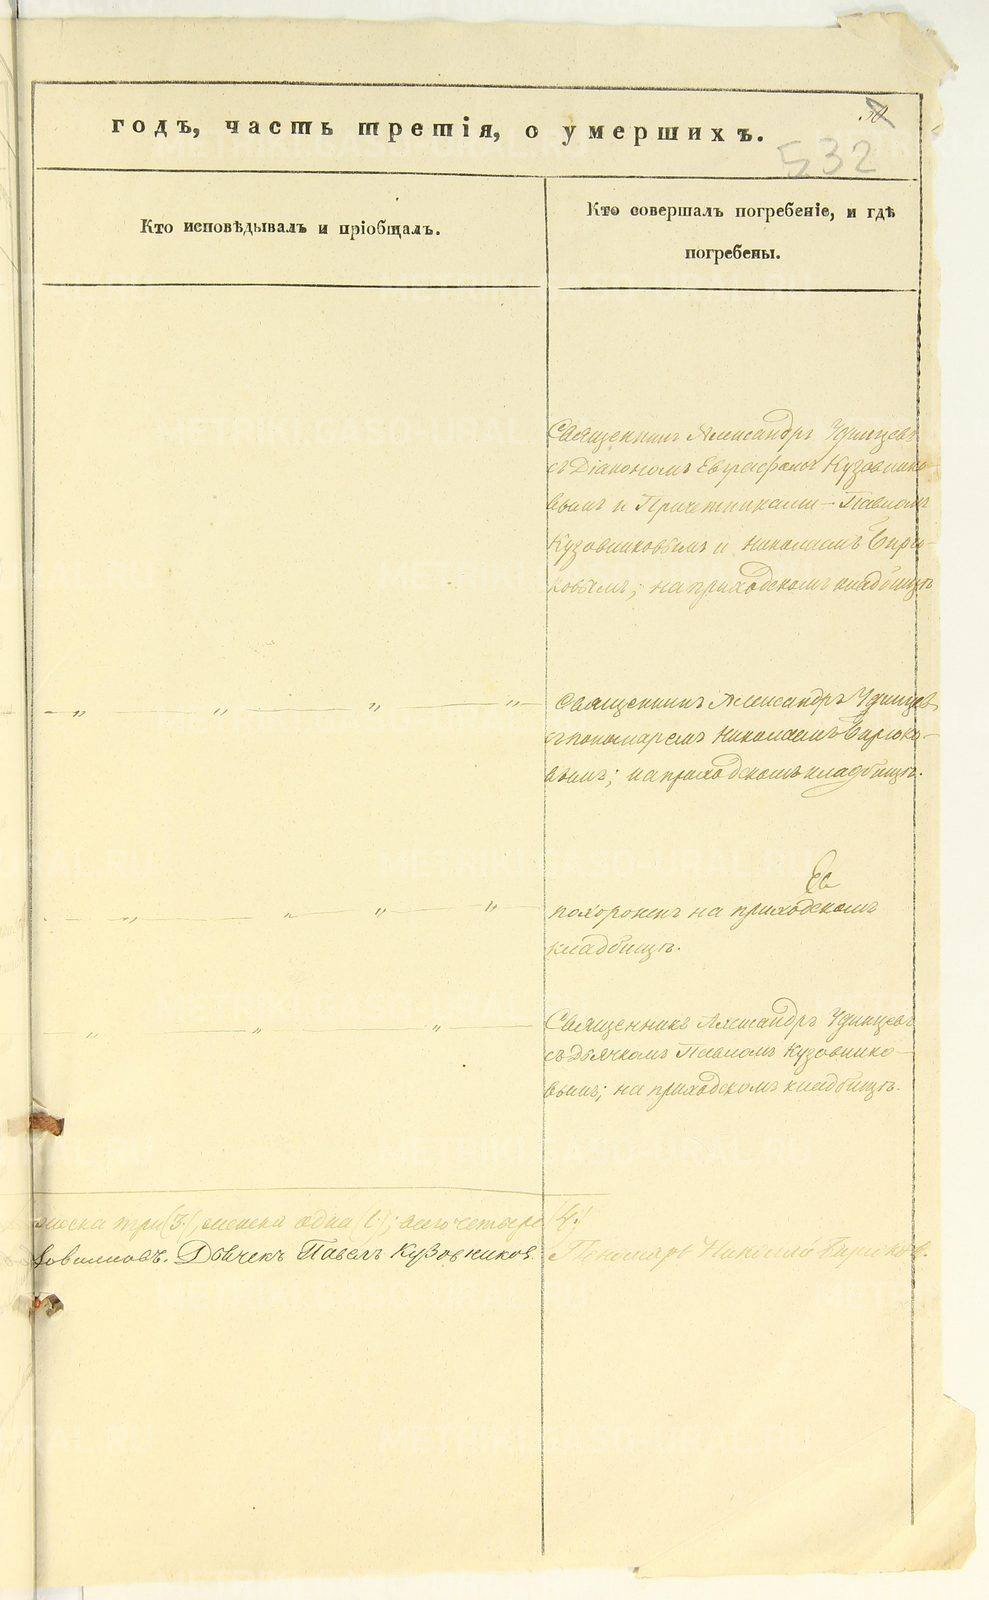 годъ, часть третія, о умершихъ.
532
Кто исповѣдывалъ и пріобщалъ.
Кто совершалъ погребеніе, и гдѣ
погребены.
Священникъ Александръ Удинцевъ
съ Діакономъ Евграфомъ Кузовнико-
вымъ и Причетниками - Павломъ
Кузовниковымъ и Николаемъ Бирю-
ковымъ; на приходскомъ кладбищѣ
Священникъ Александръ Удинцевъ
съ пономаремъ Николаемъ Бирюко-
вымъ; на приходскомъ кладбищѣ.
похороненъ на приходскомъ
кладбищѣ.
Священникъ Александръ Удинцевъ
съ Дьячкомъ Павломъ Кузовнико-
вымъ; на приходскомъ кладбищѣ.
три (3), женска одна (1); всего четыре (4.)
Дьячекъ Павелъ Кузовников. Пономарь Николай Бирюков.
METRIKI.GASO-URAL.RU